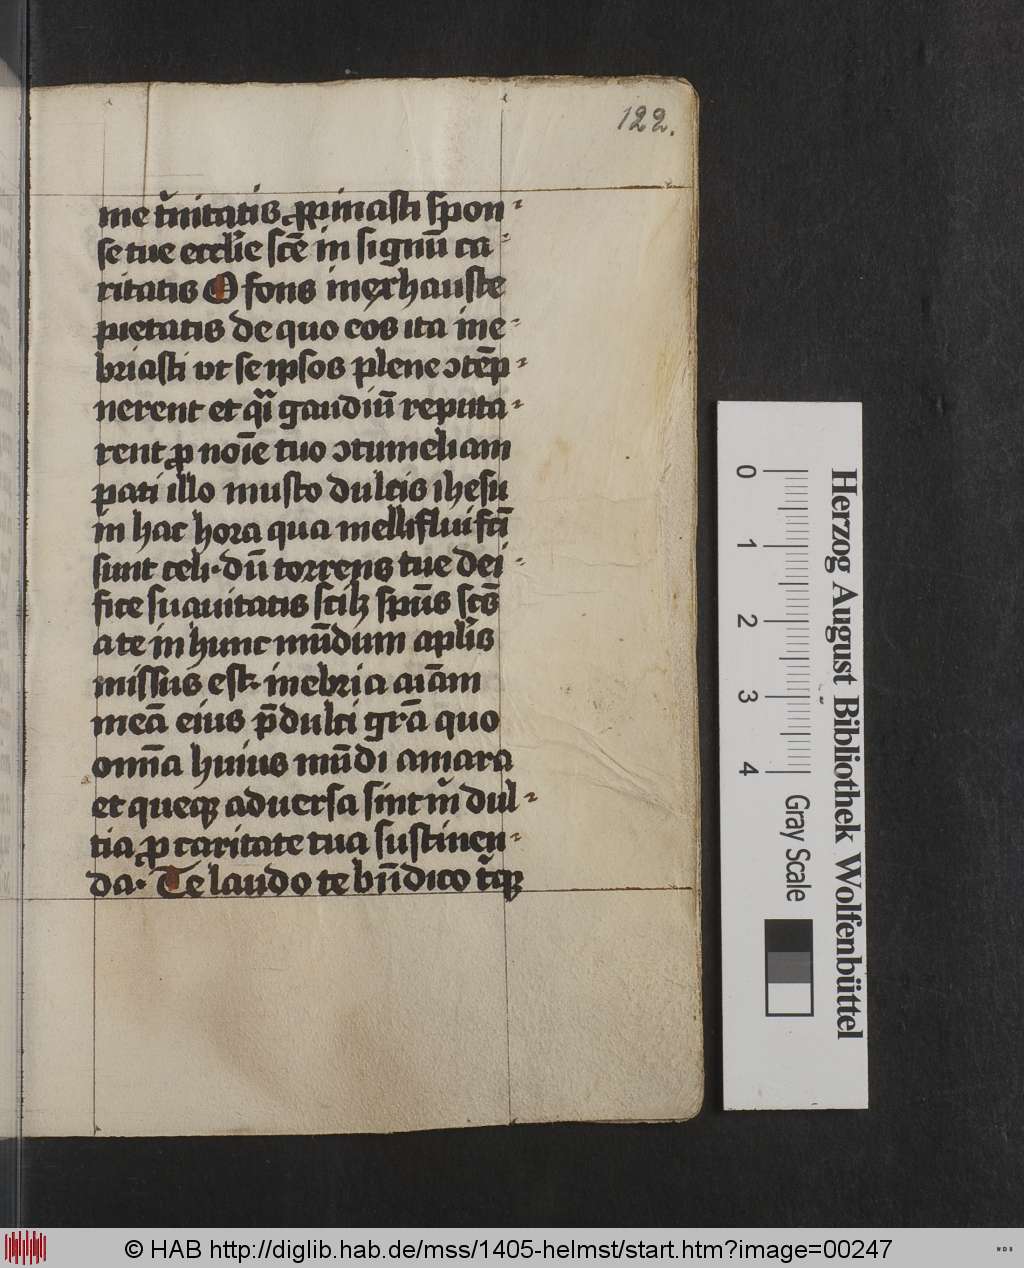 122.
me t̾nitatis ꝓpinasti spon⸗
se tue eccl̄ie scē in signū ca⸗
ritatis O fons inexhauste
pietatis de quo eos ita ine⸗
briasti vt se ipsos plene ↄtēp⸗
nerent et q̄i gaudiū reputa⸗
rent ꝓ noīe tuo ↄtumeliam
pati illo musto dulcis ihesu
in hac hora qua melliflui fc̄i
sunt celi · dū torrens tue dei⸗
fice suauitatis scilꝫ sp̄us sc̄s
a te in hunc mūdum apl̄is
missus est · inebria aīam
meā eius p̄dulci gr̄a quo
omīa huius mūdi amara
et queqꝫ aduersa sint m̄ dul⸗
cia ꝓ caritate tua sustinen⸗
da · Te laudo te bn̄dico t̄qꝫ
Herzog August Bibliothek Wolfenbüttel
0 1 2 3 4
Gray Scale
© HAB http://diglib.hab.de/mss/1405-helmst/start.htm?image=00247